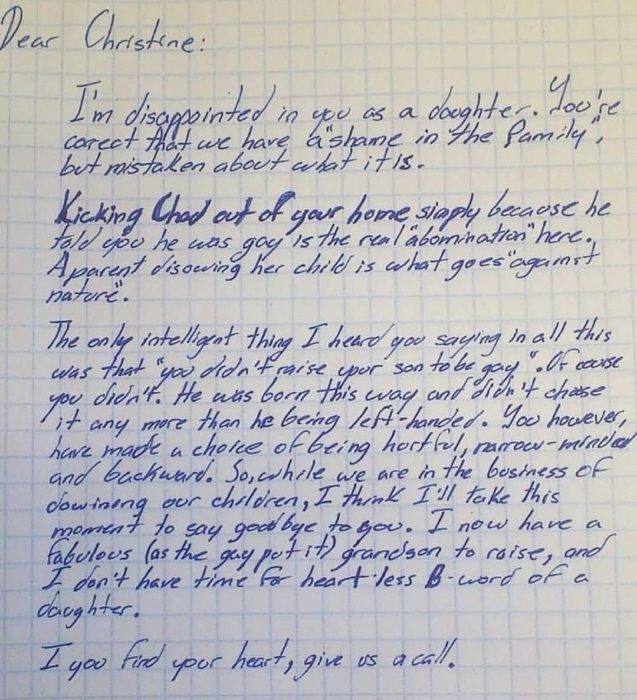 Dear Christine:
I'm disappointed in you as a daughter. You're
corect that we have a "shame in the family",
but mistaken about what it is.
Kicking Chad out of your home simply because he
told you he was gay is the real "abomination" here.
A parent disowing her child is what goes "against
nature".
The only intelligent thing I heard you saying in all this
was that "you didn't raise your son to be gay". Of course
you didn't. He was born this way and didn't choose
it any more than he being left-handed. You however,
have made a choice of being hurtful, narrow-minded
and backward. So, while we are in the business of
dowining our children, I think I'll take this
moment to say goodbye to you. I now have a
fabulous (as the gay put it) grandson to raise, and
I don't have time for heart-less B-word of a
daughter.
I you find your heart, give us a call.